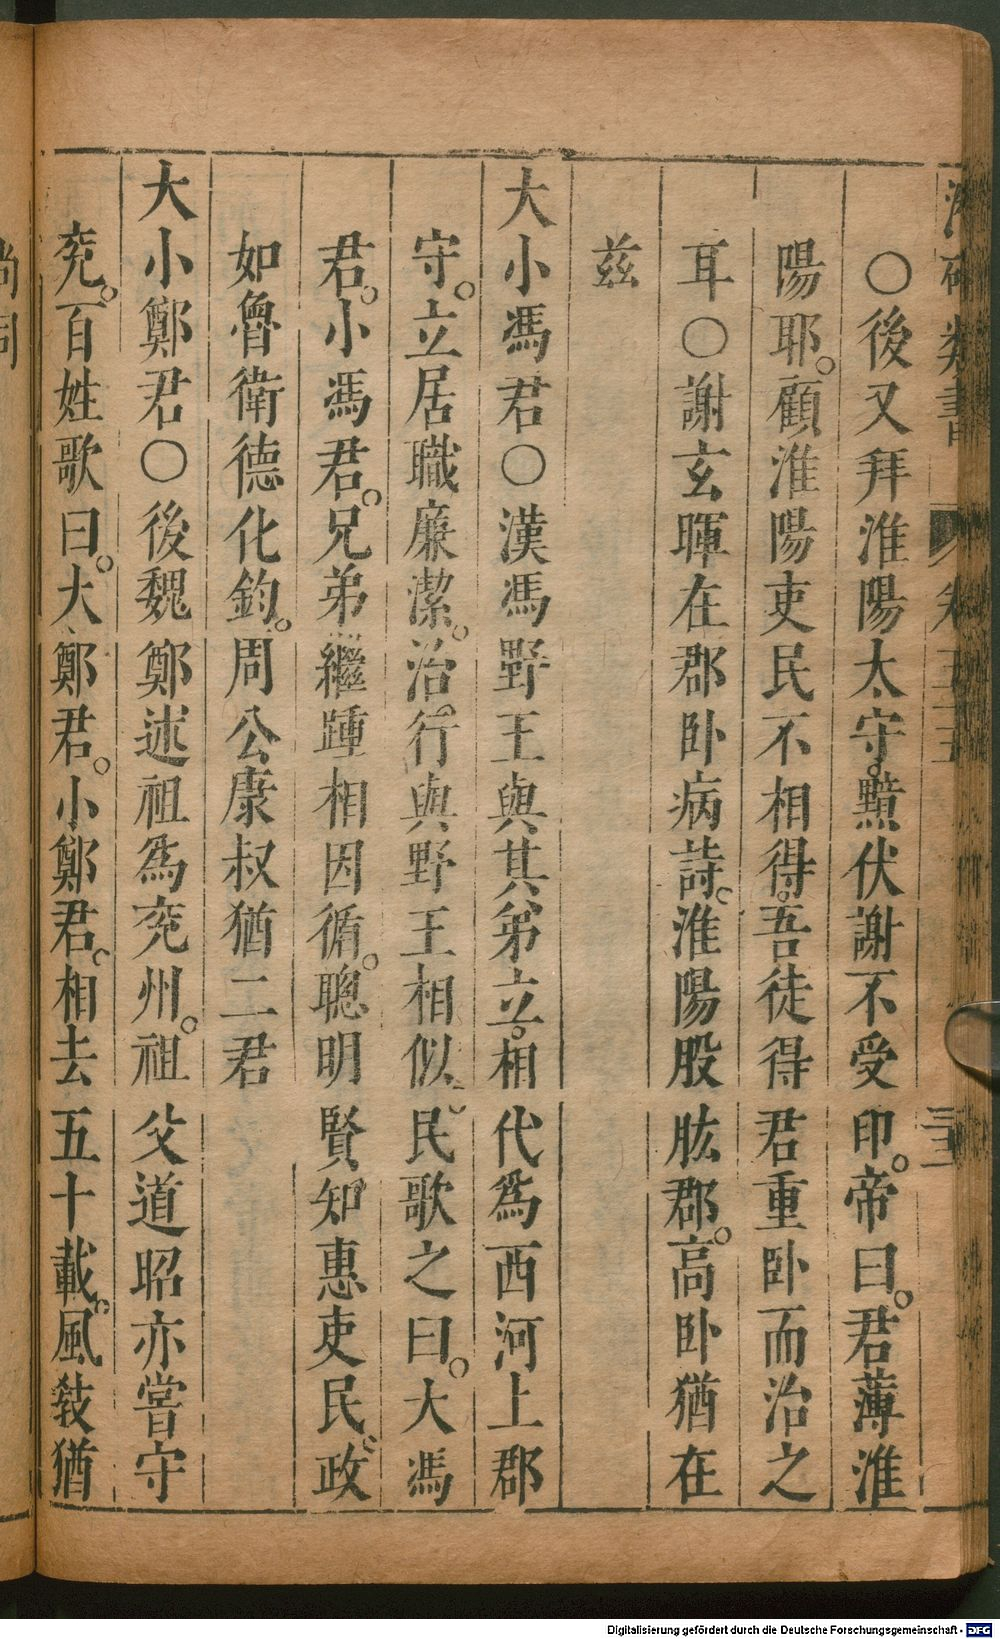 〇後又拜淮陽太守。黯伏謝不受印。帝曰。君薄淮
陽耶。顧淮陽吏民不相得。吾徒得君重卧而治之
耳〇謝玄暉在郡卧病詩。淮陽股肱郡。高卧猶在
茲
大小馮君〇漢馮野王與其弟立。相代爲西河上郡
守。立居職廉潔。治。行與野王相似。民歌之曰。大馮
君。小馮君。兄弟繼踵相因循。聰明賢知。惠吏民。政
如魯衛德化鈞。周公康叔猶二君
大小鄭君〇後魏鄭述祖爲兖州。祖父道昭亦嘗守
兖。百姓歌曰。大鄭君。小鄭君。相去五十載。風敎猶
尚同
Digitalisierung gefördert durch die Deutsche Forschungsgemeinschaft - DFG